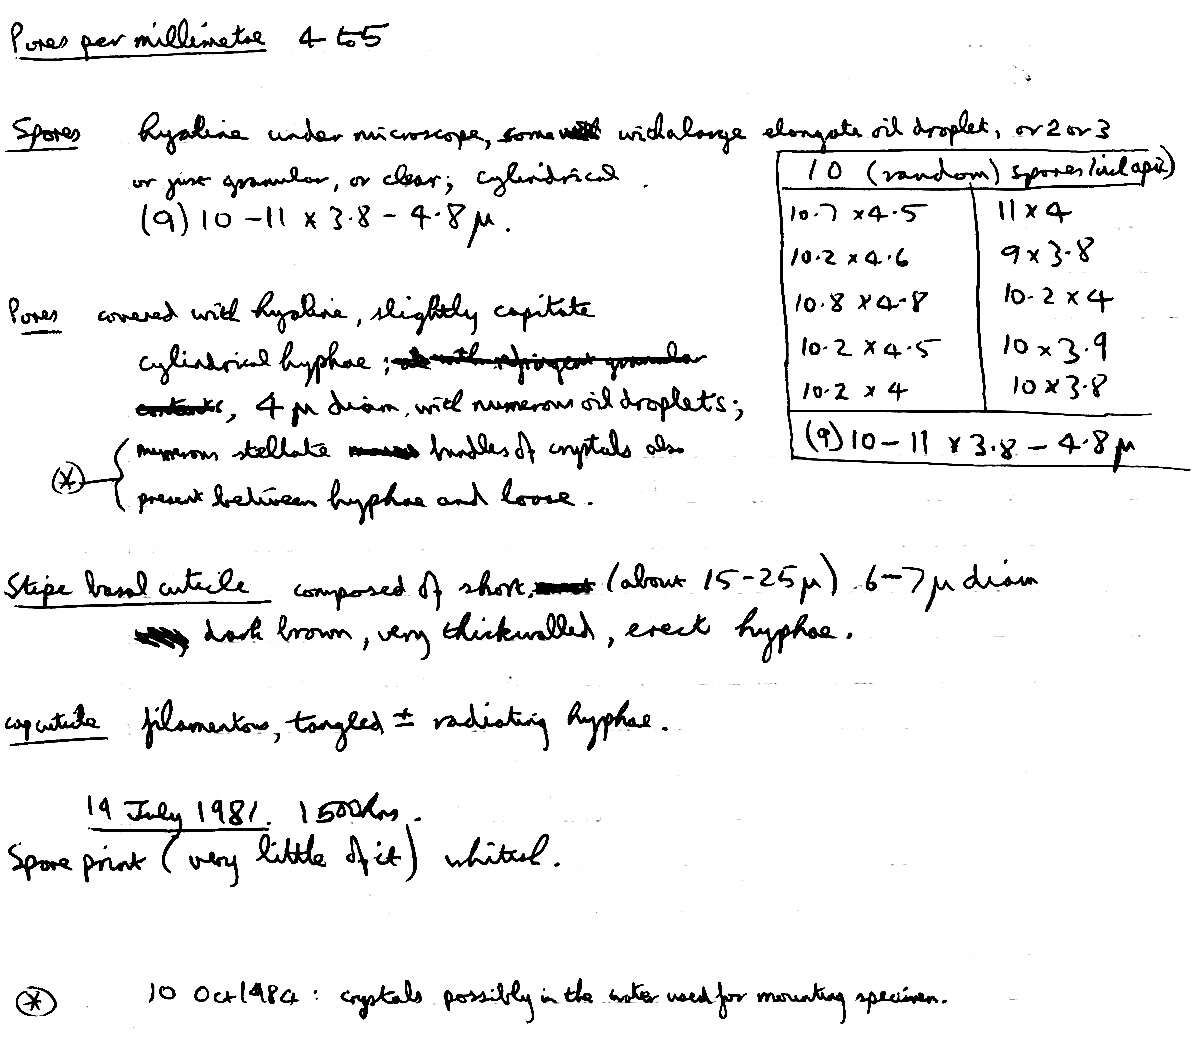 Pores per millimetre 4 to 5
Spores hyaline under microscope, some with a large elongate oil droplet, or 2 or 3
or just granular, or clear; cylindrical.
(9) 10 - 11 x 3.8 - 4.8 µ.
10 (random) spores (incl apic)
10.7 x 4.5 11 x 4
10.2 x 4.6 9 x 3.8
10.8 x 4.8 10.2 x 4
10.2 x 4.5 10 x 3.9
10.2 x 4 10 x 3.8
(9) 10 - 11 x 3.8 - 4.8 µ
Pores covered with hyaline, slightly capitate
cylindrical hyphae; with refringent granular
contents, 4 µ diam, with numerous oil droplets;
numerous stellate bundles of crystals also
* present between hyphae and loose.
Stipe basal cuticle composed of short, (about 15-25µ) 6-7µ diam
dark brown, very thickwalled, erect hyphae.
cap cuticle filamentous, tangled ± radiating hyphae.
14 July 1981. 1500hrs.
Spore print (very little of it) whitish.
* 10 Oct 1984: crystals possibly in the water used for mounting specimen.